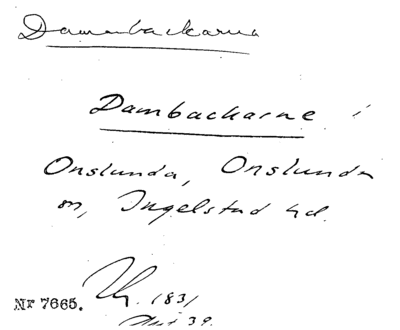 Dambackarna
Dambackarne i
Onslunda, Onslunda
sn, Ingelstad hd.
Nr 7665. 1831
39.